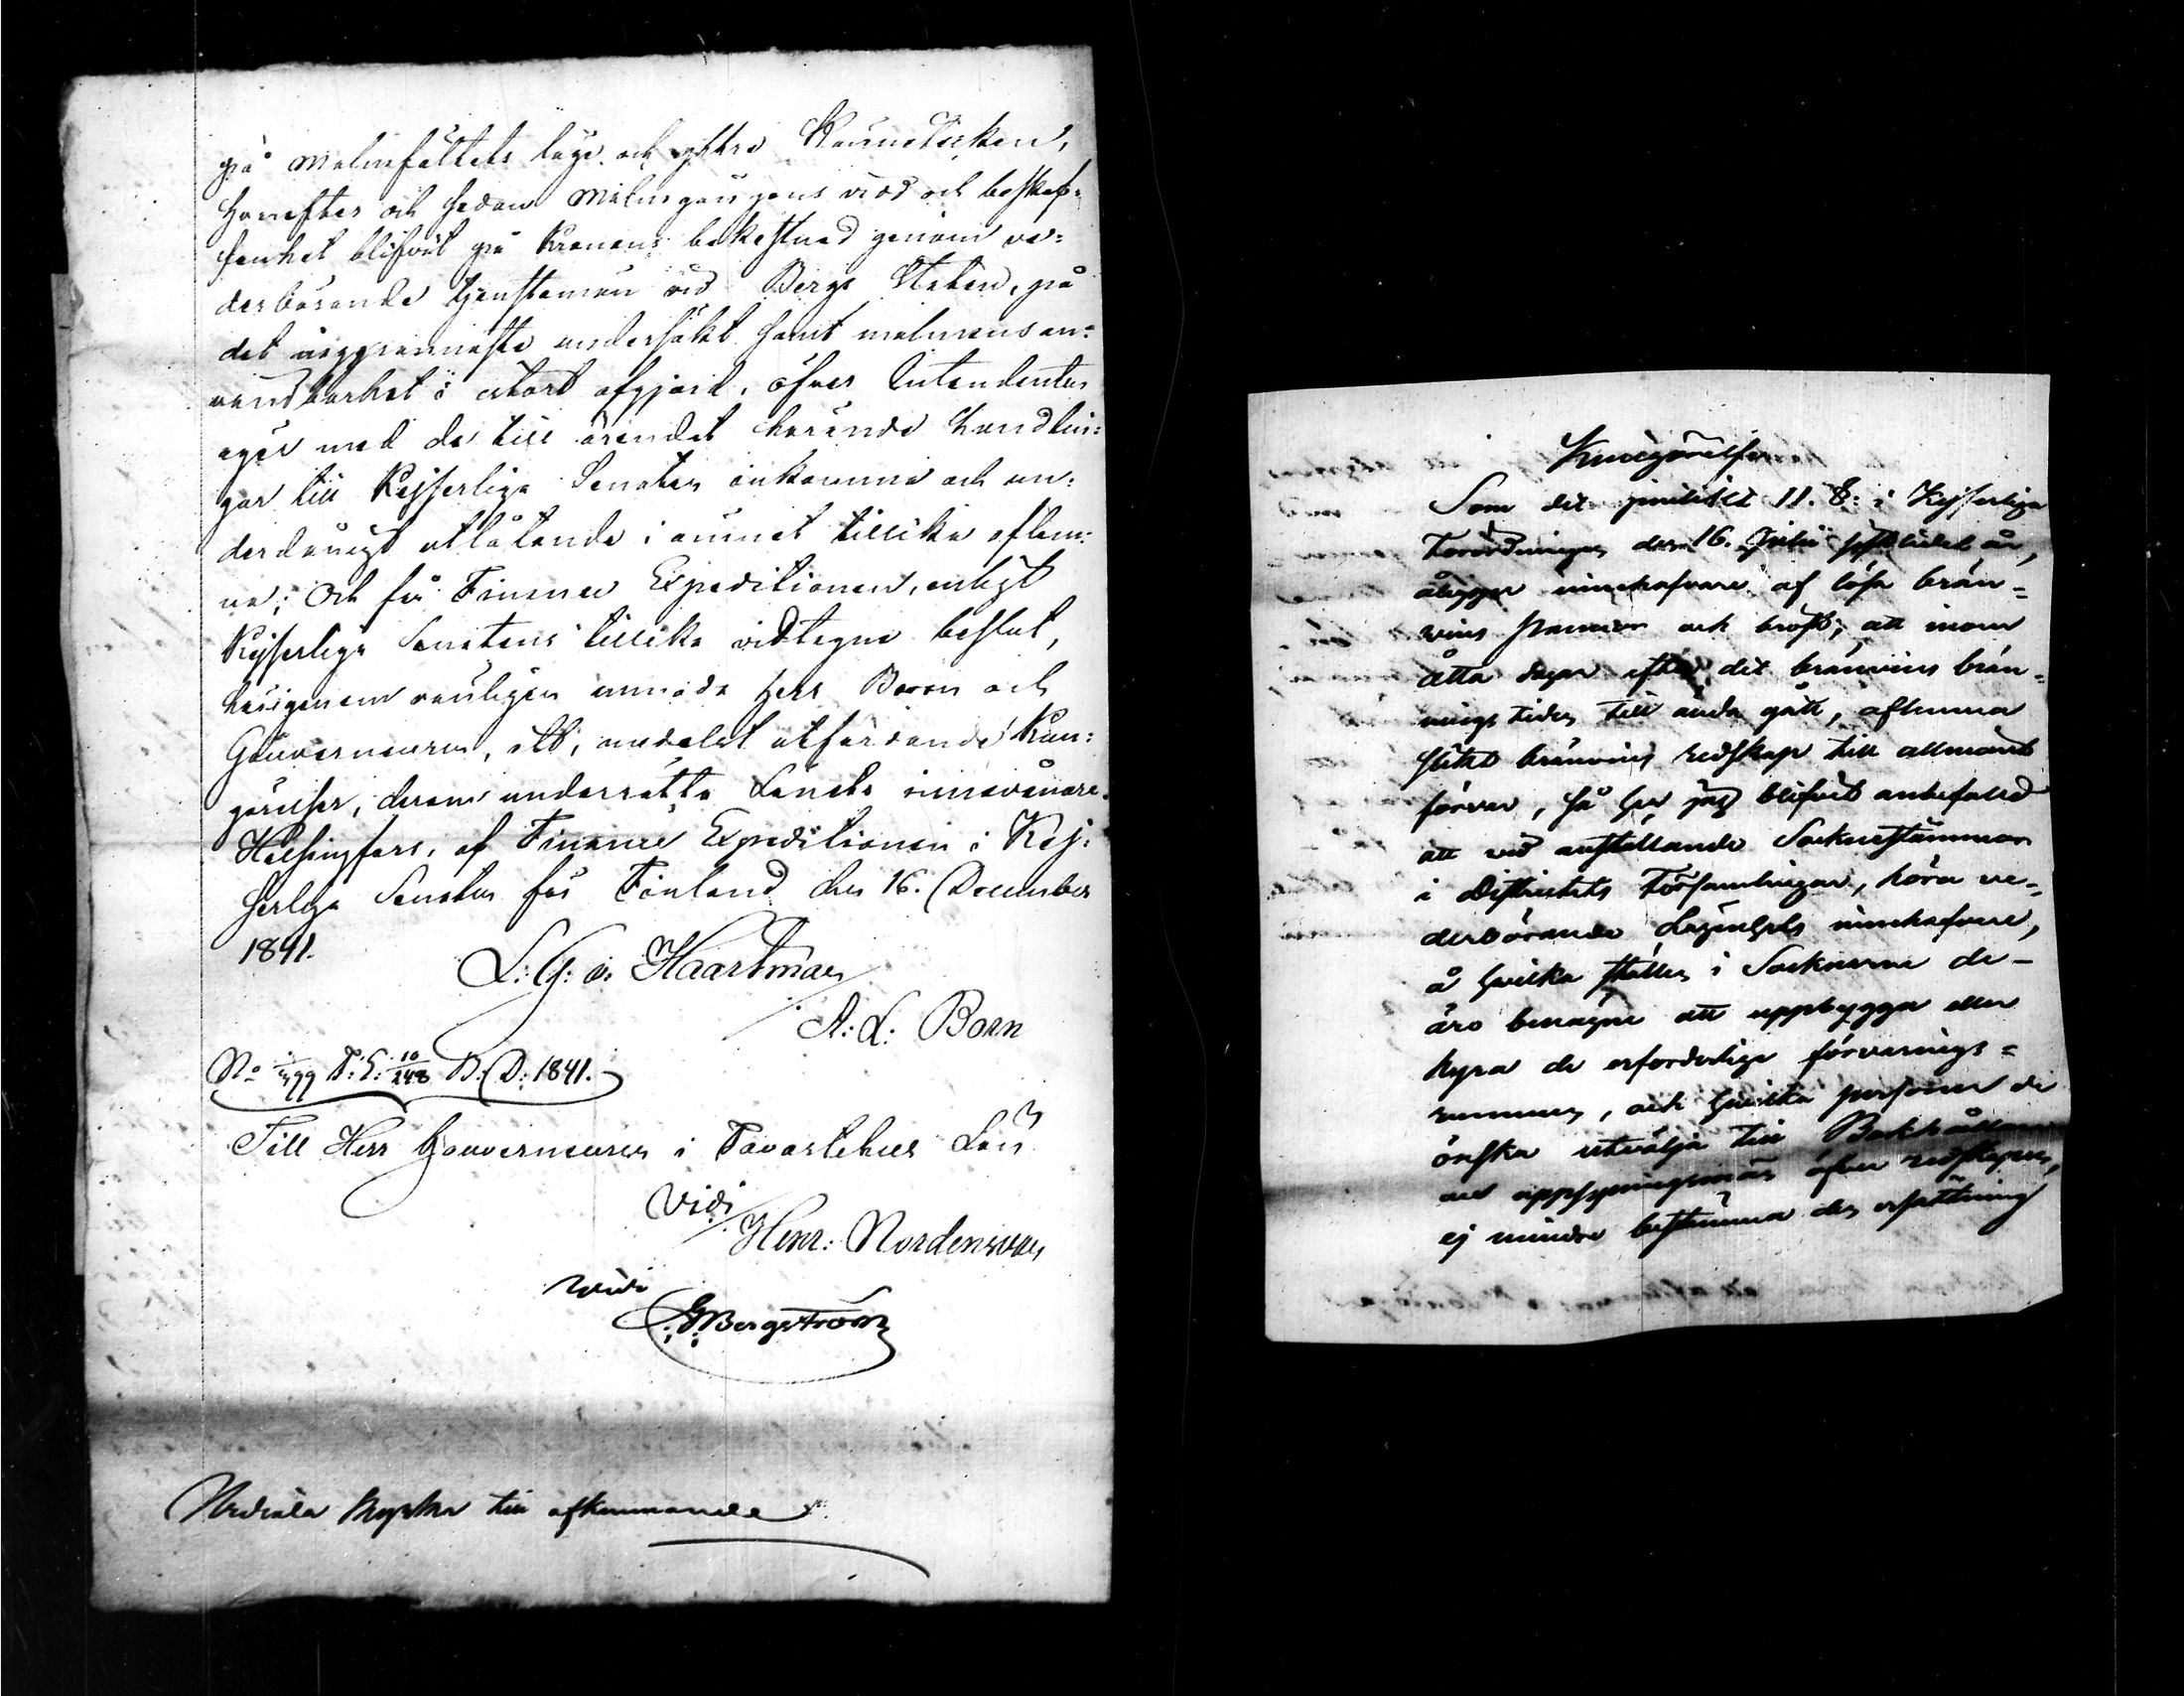 på malmfältets läge och yttre Kännetecken,
hvarefter och sedan Malmgångens vidd och beskaf=
fenhet blifvit på Kronans bekostnad genom ve=
derbörande tjenstemän vid Bergs Staten, på
det noggrannaste undersökt samt malmens an=
vändbarhet i stort afgjord, öfver Intendenten
eger med de till ärendet hörande handlin=
gar till Kejserliga Senaten inkomma och un=
derdånigt utlåtande i ämnet tillika aflem=
na; Och får Finance Expeditionen, enligt
Kejserliga Senatens tillika vidtagne beslut,
härigenom vänligen anmoda Herr Baron och
Gouverneuren, att, medelst utfärdande Kun=
görelser, derom underrätta Länets innevånare.
Helsingfors, af Finance Expeditionen i Kej=
serliga Senaten för Finland den 16. December
1841.
L: G: v: Haartman
A: L: Born
No 499 F: E: 10/248 B: D: 1841.
Till Herr Gouverneuren i Tavastehus Län
Vidi
Henr: Nordensvan
Vidi
G: Bergström
Urdiala kyrka till afkunnande
Kungörelse
Som det jemlikt 11. §: i Kejserliga
Förordningen den 16. Julii sistledet år,
åligger innehafvare af lösa brän=
vins pannor och hroft, att inom
åtta dagar efter det brännvins brän=
nings tiden till ända gått, aflemna
slikt brännvins redskap till allmänt
förvar, så har jag blifvit anbefalld
att vid anställande Sockenstämmor
i Districtets Församlingar, höra ve=
derbörande Lägenhets innehafvare,
å hvilka ställen i Socknarne de
äro benägne att uppbygga eller
hyra de erforderlige förvarings=
rummen, och hvilka personer de
önska utvälja till
och uppsyningsmän öfver redskapen,
ej mindre bestämma den ersättning